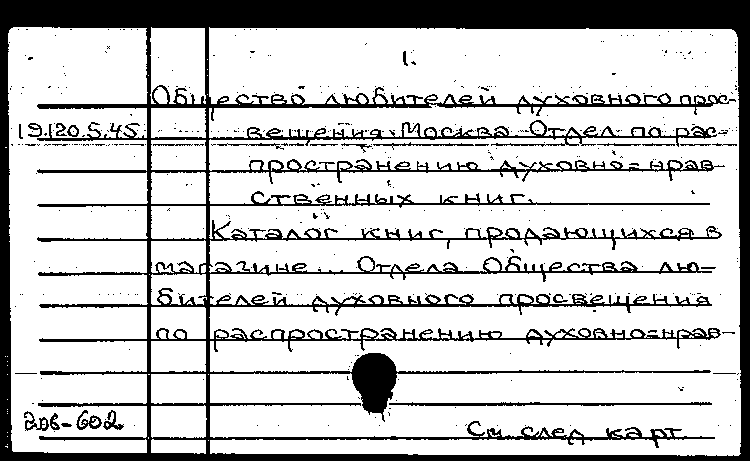 1.
Общество любителей духовного прос-
19.120.5.45. вещения. Москва. Отдел по рас-
пространению духовно=нрав-
ственных книг.
Каталог книг, продающихся в
магазине... Отдела Общества лю=
бителей духовного просвещения
по распространению духовно=нрав-
См. след. карт.